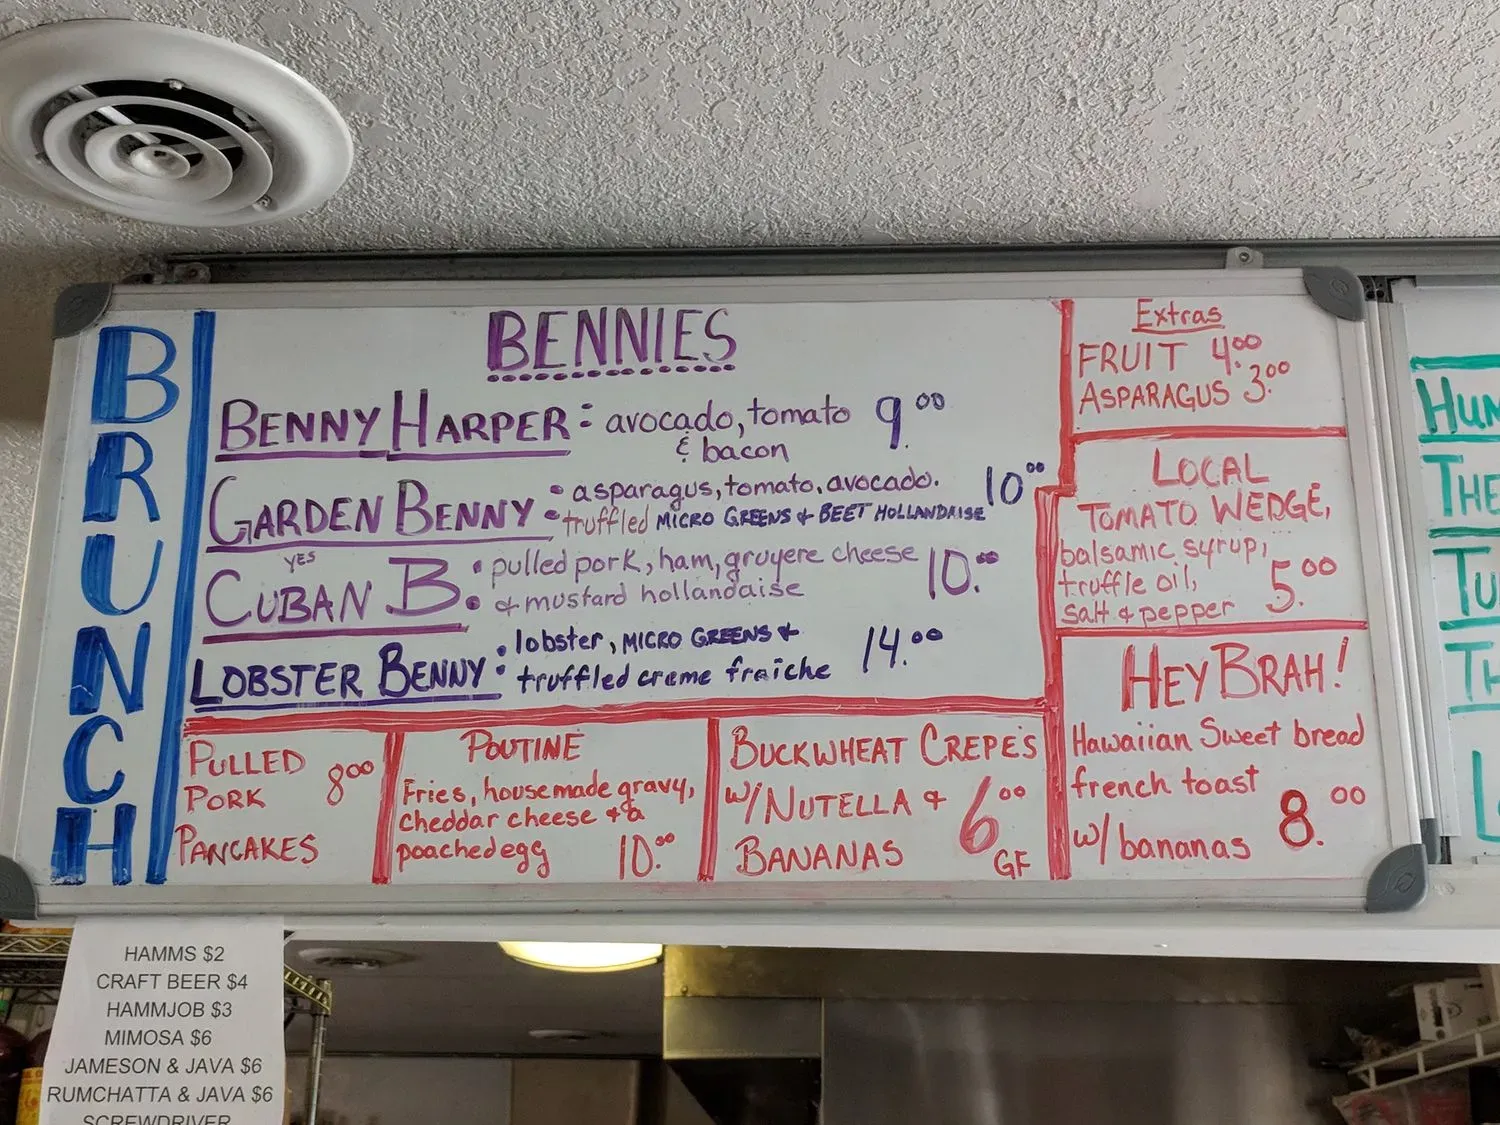 BRUNCH
BENNIES
BENNY HARPER: avocado, tomato 9.00
& bacon
GARDEN BENNY: asparagus, tomato, avocado. 10.00
truffled MICRO GREENS & BEET HOLLANDAISE
YES
CUBAN B.: pulled pork, ham, gruyere cheese 10.00
& mustard hollandaise
LOBSTER BENNY: lobster, MICRO GREENS & 14.00
truffled creme fraiche
Extras
FRUIT 4.00
ASPARAGUS 3.00
LOCAL
TOMATO WEDGE,
balsamic syrup,
truffle oil, 5.00
salt & pepper
PULLED
PORK 8.00
PANCAKES
POUTINE
Fries, housemade gravy,
cheddar cheese & a
poached egg 10.00
BUCKWHEAT CREPE'S
W/ NUTELLA & 6.00
BANANAS GF
HEY BRAH!
Hawaiian Sweet bread
french toast
w/ bananas 8.00
THE
HAMMS $2
CRAFT BEER $4
HAMMJOB $3
MIMOSA $6
JAMESON & JAVA $6
RUMCHATTA & JAVA $6
SCREWDRIVER